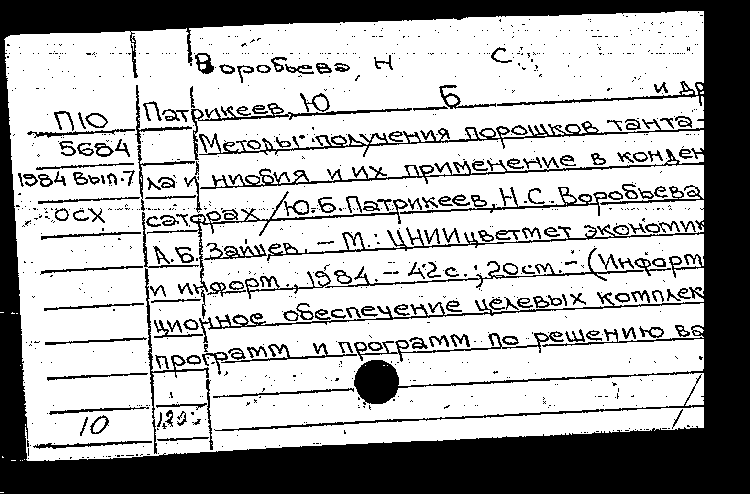 Воробьева, Н С.
Патрикеев, Ю Б и др
П10
5684
1984 Вып.7
ОСХ
Методы получения порошков танта-
ла и ниобия и их применение в конден
саторах / Ю.Б. Патрикеев, Н.С. Воробьева
А.Б. Зайцев. – М.: ЦНИИцветмет экономик
и информ., 1984. – 42 с.; 20 см. – (Информ
ционное обеспечение целевых комплек
программ и программ по решению ва
10